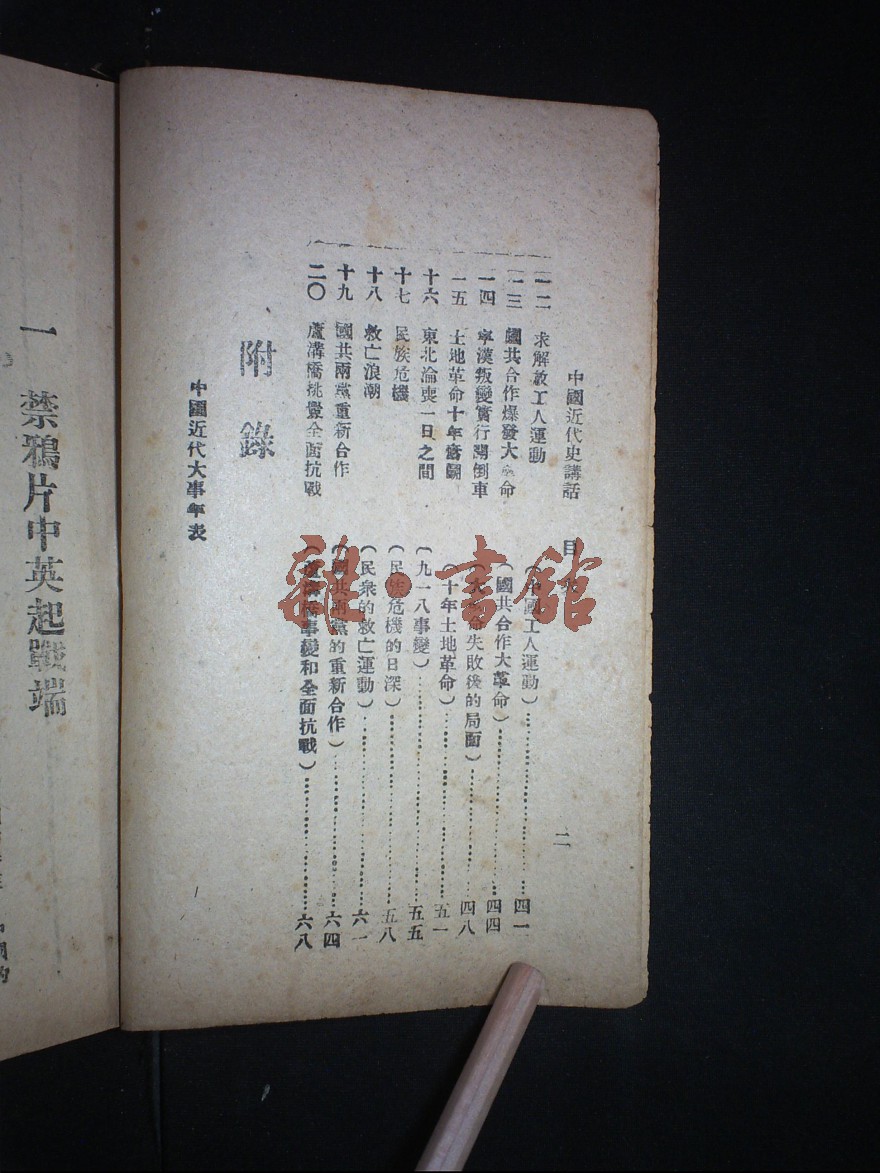 中國近代史講話 目 二
一二 求解放工人運動 （中國工人運動）…… 四一
一三 國共合作爆發大革命 （國共合作大革命）…… 四四
一四 寧漢叛變實行開倒車 （大革命失敗後的局面）…… 四八
一五 土地革命十年奮鬭 （十年土地革命）…… 五一
十六 東北淪喪一日之間 （九一八事變）…… 五五
十七 民族危機 （民族危機的日深）…… 五八
十八 救亡浪潮 （民衆的救亡運動）…… 六一
十九 國共兩黨重新合作 （國共兩黨的重新合作）…… 六四
二〇 蘆溝橋挑釁全面抗戰 （蘆溝橋事變和全面抗戰）…… 六八
附錄
中國近代大事年表
一 禁鴉片中英起戰端
雜·書館